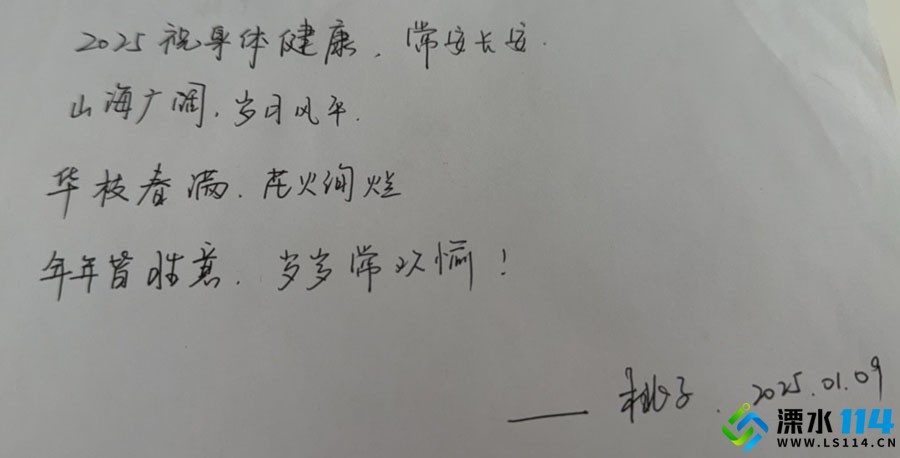 2025祝身体健康，常安长安.
山海广阔，岁月风平.
华枝春满，花火绚烂
年年皆胜意，岁岁常欢愉！
——桃子，2025.01.09
溧水114
WWW.LS114.CN